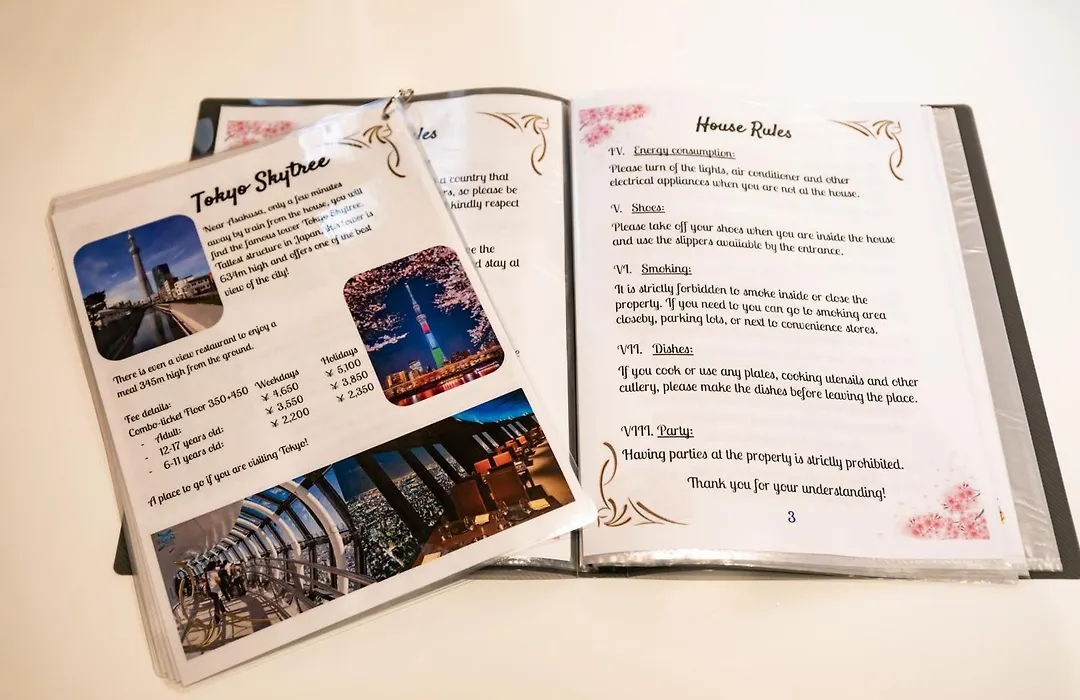 Tokyo Skytree
Near Asakusa, only a few minutes
away by train from the house, you will
find the famous tower Tokyo Skytree.
Tallest structure in Japan, this tower is
634m high and offers one of the best
view of the city!
There is even a view restaurant to enjoy a
meal 345m high from the ground.
Fee details:
Combo-ticket Floor 350+450 Weekdays Holidays
- Adult: ¥ 4,650 ¥ 5,100
- 12-17 years old: ¥ 3,550 ¥ 3,850
- 6-11 years old: ¥ 2,200 ¥ 2,350
A place to go if you are visiting Tokyo!
a country that
so please be
kindly respect
the
stay at
House Rules
IV. Energy consumption:
Please turn of the lights, air conditioner and other
electrical appliances when you are not at the house.
V. Shoes:
Please take off your shoes when you are inside the house
and use the slippers available by the entrance.
VI. Smoking:
It is strictly forbidden to smoke inside or close the
property. If you need to you can go to smoking area
closeby, parking lots, or next to convenience stores.
VII. Dishes:
If you cook or use any plates, cooking utensils and other
cutlery, please make the dishes before leaving the place.
VIII. Party:
Having parties at the property is strictly prohibited.
Thank you for your understanding!
3